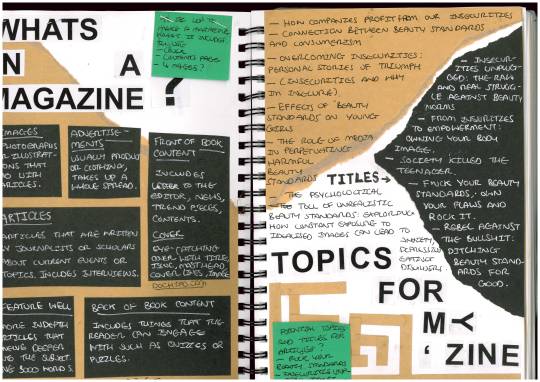 WHATS
IN A
MAGAZINE ?
MAKE A MAGAZINE
WHAT IS INCLUDED
- COVER
- CONTENTS PAGE
- 4 PAGES?
IMAGES
PHOTOGRAPHS
OR ILLUSTRAT-
IONS THAT
GO WITH
ARTICLES.
ADVERTISE-
MENTS
USUALLY PRODUCT
OR CLOTHING,
TAKES UP A
WHOLE SPREAD.
FRONT OF BOOK
CONTENT
INCLUDES
LETTER TO THE
EDITOR, NEWS,
TREND PIECES,
CONTENTS.
COVER
EYE-CATCHING
COVER WITH TITLE,
TIME, MASTHEAD
COVER LINES, IMAGE
ARTICLES
ARTICLES THAT ARE WRITTEN
BY JOURNALISTS OR SCHOLARS
ABOUT CURRENT EVENTS OR
TOPICS. INCLUDES INTERVIEWS.
FEATURE WELL
MORE INDEPTH
ARTICLES THAT
DELVE DEEPER
INTO THE SUBJECT.
3000 WORDS.
BACK OF BOOK CONTENT
INCLUDES THINGS THAT THE
READER CAN ENGAGE
WITH SUCH AS QUIZZES OR
PUZZLES.
- HOW COMPANIES PROFIT FROM OUR INSECURITIES
- CONNECTION BETWEEN BEAUTY STANDARDS
AND CONSUMERISM
- OVERCOMING INSECURITIES:
PERSONAL STORIES OF TRIUMPH
- (INSECURITIES AND WHY
I'M INSECURE).
- EFFECTS OF BEAUTY
STANDARDS ON YOUNG
GIRLS
- THE ROLE OF MEDIA
IN PERPETUATING
HARMFUL
BEAUTY
STANDARDS
TITLES →
- THE PSYCHOLOGICAL
TOLL OF UNREALISTIC
BEAUTY STANDARDS: EXPLORING
HOW CONSTANT EXPOSURE TO
IDEALISED IMAGES CAN LEAD TO
ANXIETY,
DEPRESSION
EATING
DISORDERS.
- INSECUR-
ITIES UNPLUG-
GED: THE RAW
AND REAL STRUGG-
LE AGAINST BEAUTY
NORMS
- FROM INSECURITIES
TO EMPOWERMENT:
OWNING YOUR BODY
IMAGE.
- SOCIETY KILLED THE
TEENAGER.
- FUCK YOUR BEAUTY
STANDARDS, OWN
YOUR FLAWS AND
ROCK IT.
- REBEL AGAINST
THE BULLSHIT:
DITCHING
BEAUTY STAND-
ARDS FOR
GOOD.
TOPICS
FOR
MY
' ZINE
POTENTIAL TOPICS
AND TITLES FOR
ARTICLES?
- FUCK YOUR
BEAUTY STANDARDS